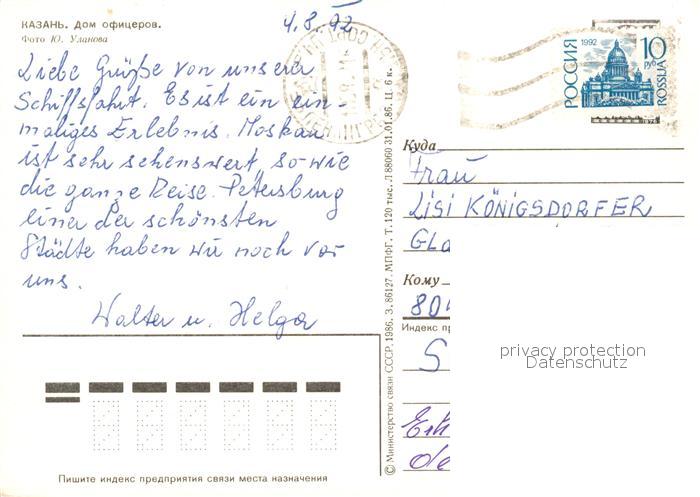 КАЗАНЬ. Дом офицеров.
Фото Ю. Уланова
4.8.92
Liebe Grüße von unserer
Schiffsfahrt. Es ist ein ein-
maliges Erlebnis. Moskau
ist sehr sehenswert, so wie
die ganze Reise. Petersburg
einer der schönsten
Städte haben wir noch vor
uns.
Walter u. Helga
Пишите индекс предприятия связи места назначения
© Министерство связи СССР. 1986. З. 86127. МПФГ. Т. 120 тыс. Л 88060 31.01.86. Ц. 6 к.
РОССИЯ
1992
10
руб
ROSSIJA
Куда
Frau
LiSi KÖNIGSDORFER
GLa
Кому
80
Индекс пр
S
privacy protection
Datenschutz
de